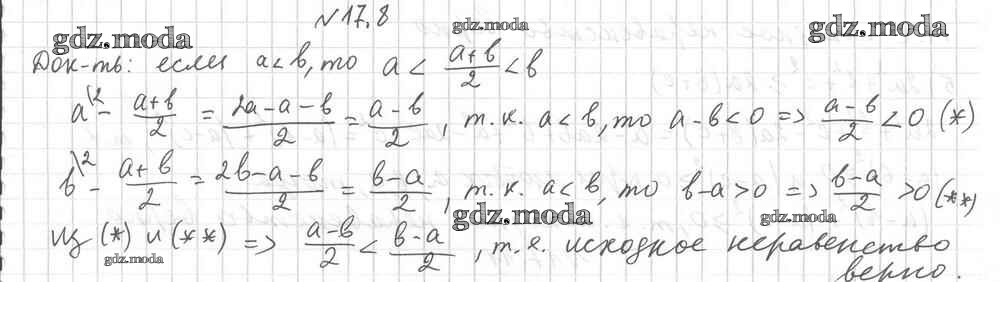 №17.8
gdz.moda
gdz.moda
gdz.moda
Док-ть: если a<b, то a < (a+b)/2 < b
a\2 - (a+b)/2 = (2a-a-b)/2 = (a-b)/2, т.к. a<b, то a-b<0 => (a-b)/2 < 0 (*)
b\2 - (a+b)/2 = (2b-a-b)/2 = (b-a)/2, т.к. a<b, то b-a>0 => (b-a)/2 >0 (**)
gdz.moda
gdz.moda
Из (*) и (**) => (a-b)/2 < (b-a)/2, т.е. исходное неравенство
верно.
gdz.moda